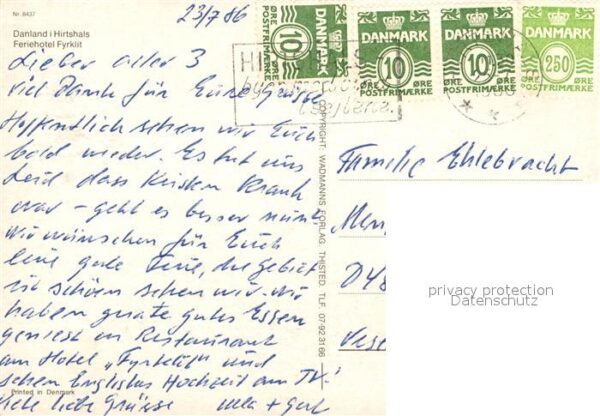 Nr. 8437
23/7 86
Danland i Hirtshals
Feriehotel Fyrklit
Lieber aller 3
viel Dank für Eure Grüße
Hoffentlich sehen wir Euch
bald wieder. Es tut uns
Leid dass Kirsten krank
war – geht es besser nun?
Wir wünschen für Euch
eine gute Ferie, die gebiet
ist schöen sehen wir. Wir
haben gerade gutes Essen
geniest in Restaurant
am Hotel "Fyrklit" und
sehen Englishs Hochzeit am TV.
Viele liebe Grüsse
Printed in Denmark
COPYRIGHT: WADMANNS FORLAG THISTED. TLF. 07-92 31 66
DANMARK
10
ØRE
POSTFRIMÆRKE
DANMARK
10
ØRE
POSTFRIMÆRKE
DANMARK
10
ØRE
POSTFRIMÆRKE
DANMARK
250
ØRE
POSTFRIMÆRKE
Familie Ehlebracht
privacy protection
Datenschutz